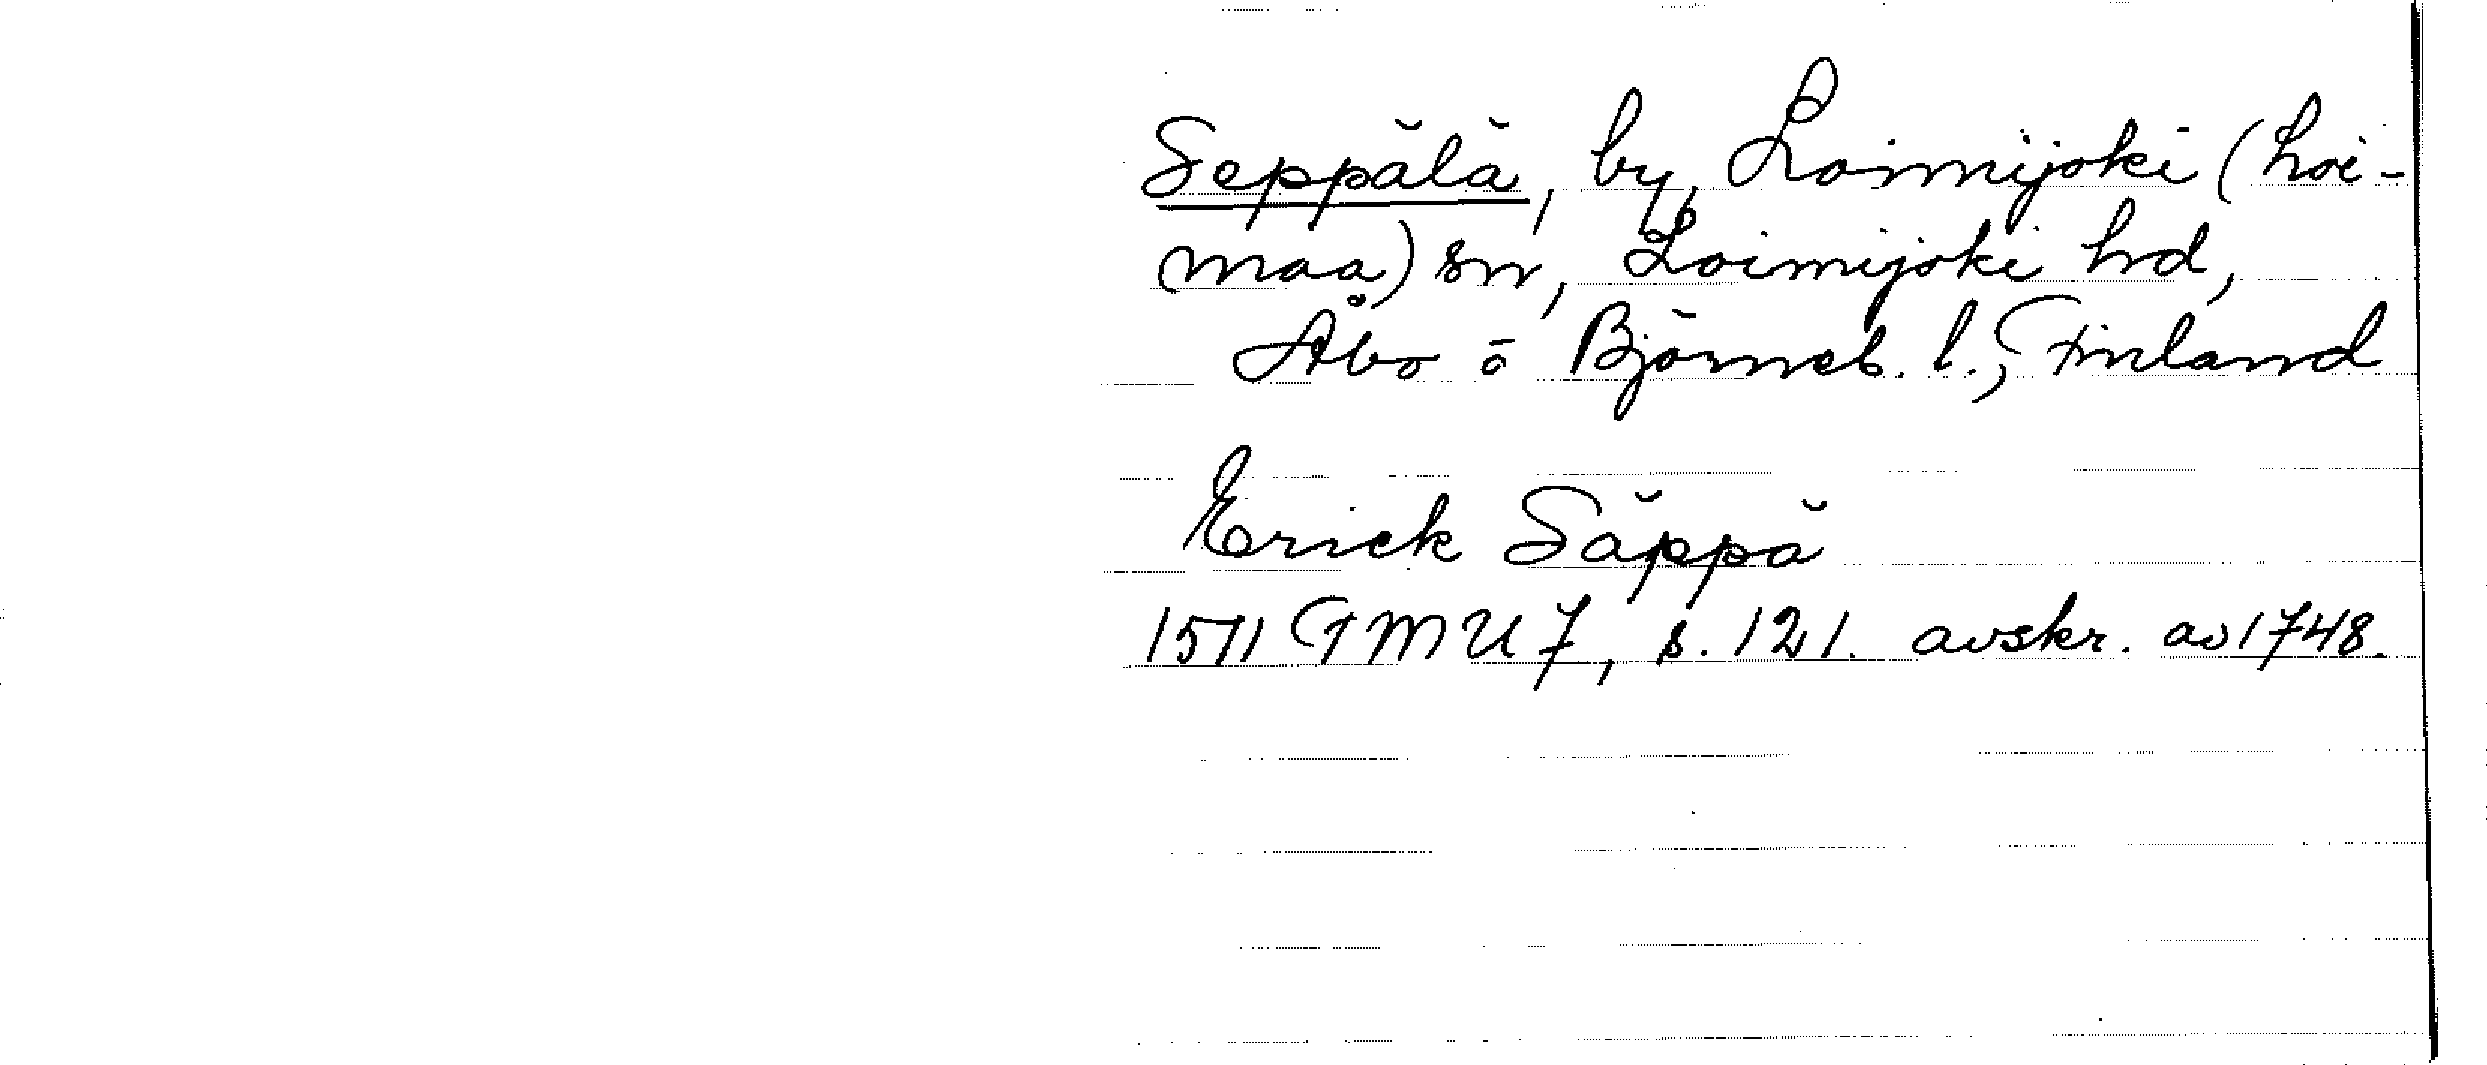 Seppälä, by, Loimijoki (Loi-
maa) sn, Loimijoki hd,
Åbo o Björneb. l., Finland
Erick Säppä
1571 FMU 7, s. 121. avskr. av 1748.